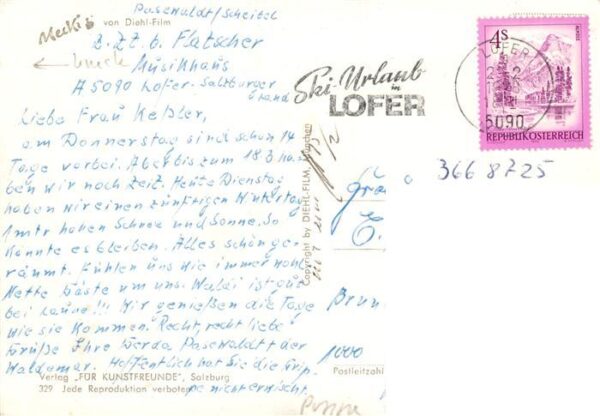 Pasewaldt/Scheitel
Mecki's von Diehl-Film
b. Ztt. b. Flatscher
Musikhaus
A 5090 Lofer-Salzburger
land
Liebe Frau Keßler,
am Donnerstag sind schon 14
Tage vorbei. Aber bis zum 18.3 ha.
ben wir noch Zeit. Heute Dienstag
haben wir einen zünftigen Wintertag
1 mtr hohen Schnee und Sonne. So
könnte es bleiben. Alles schön ge-
räumt. Fühlen uns wie immer wohl
Nette Gäste um uns. Waldi ist gus
bei Laune!!! Wir genießen die Tage
wie sie kommen. Recht, recht liebe
Grüße Ihre Gerda Pasewaldt + der
Waldemar. Hoffentlich hat Sie die Grip.
pe nicht erwischt.
Verlag „FÜR KUNSTFREUNDE", Salzburg
329 Jede Reproduktion verboten
Copyright by DIEHL-FILM, München
Ski-Urlaub
in
LOFER
LOFER
5090
4S
REPUBLIK ÖSTERREICH
366 8725
1000
Postleitzahl